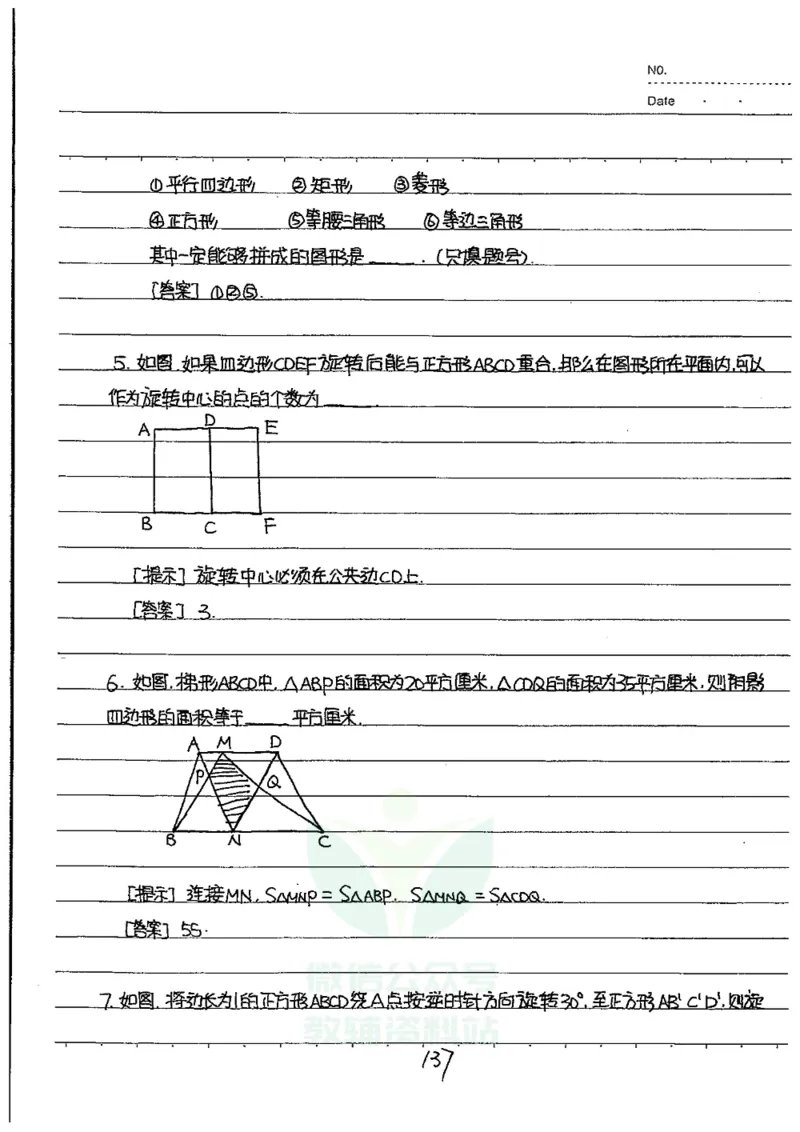 NO.
Date
①平行四边形 ②矩形 ③菱形
④正方形 ⑤等腰三角形 ⑥等边三角形
其中一定能够拼成的图形是____.(只填题号).
[答案] ①②⑤.
5. 如图,如果四边形CDEF旋转后能与正方形ABCD重合,那么在图形所在平面内,可以
作为旋转中心的点的个数为____.
A D E
B C F
[提示] 旋转中心必须在公共边CD上.
[答案] 3.
6. 如图,梯形ABCD中,△ABP的面积为20平方厘米,△CDQ的面积为35平方厘米,则阴影
四边形的面积等于____平方厘米.
A M D
P Q
B N C
[提示] 连接MN, S△MNP = S△ABP. S△MNQ = S△CDQ.
[答案] 55.
微信公众号
7. 如图,将边长为1的正方形ABCD绕A点按逆时针方向旋转30°,至正方形AB'C'D',则旋
教辅资料站
137